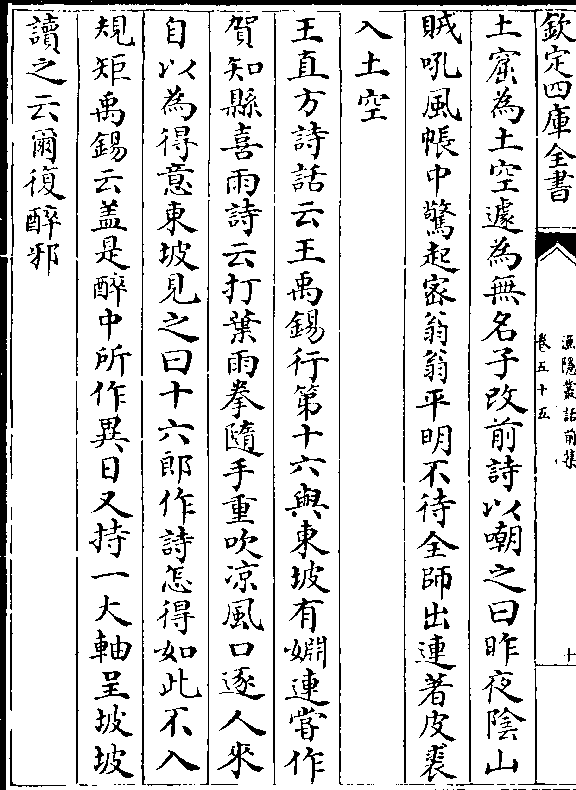 欽定四庫全書
漁隱叢話前集
卷五十五
十
土窟為土空遽為無名子改前詩以嘲之曰昨夜陰山
賊吼風帳中驚起宻翁翁平明不待全師出連著皮裘
入土空
王直方詩話云王禹錫行第十六與東坡有婣連嘗作
賀知縣喜雨詩云打葉雨拳隨手重吹凉風口逐人來
自以為得意東坡見之曰十六郎作詩怎得如此不入
規矩禹錫云盖是醉中所作異日又持一大軸呈坡坡
讀之云爾復醉邪